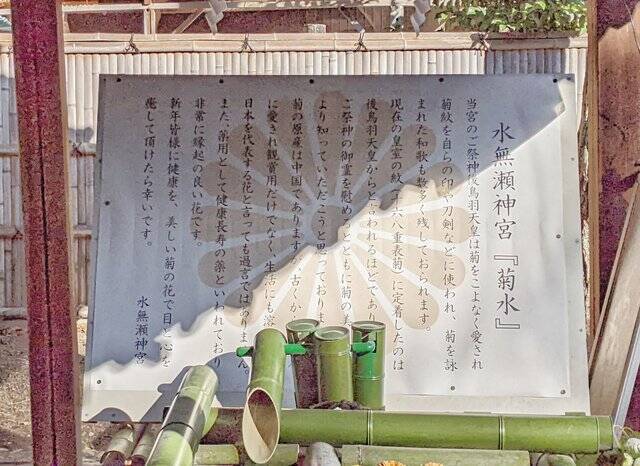 水無瀬神宮『菊水』
当宮のご祭神後鳥羽天皇は菊をこよなく愛され
菊紋を自らの印や刀剣などに使われ、菊を詠
まれた和歌も数多く残しておられます。
現在の皇室の紋(十六八重表菊)に定着したのは
後鳥羽天皇からと言われるほどであり
ご祭神の御霊を慰めるとともに菊の
より知っていただこうと思っており
菊の原産は中国でありますが、古くか
に愛され観賞用だけでなく、生活にも
日本を代表する花と言っても過言ではありません。
また、薬用として健康長寿の薬といわれており
非常に縁起の良い花です。
新年皆様に健康を、美しい菊の花で目と心を
癒して頂けたら幸いです。
水無瀬神宮